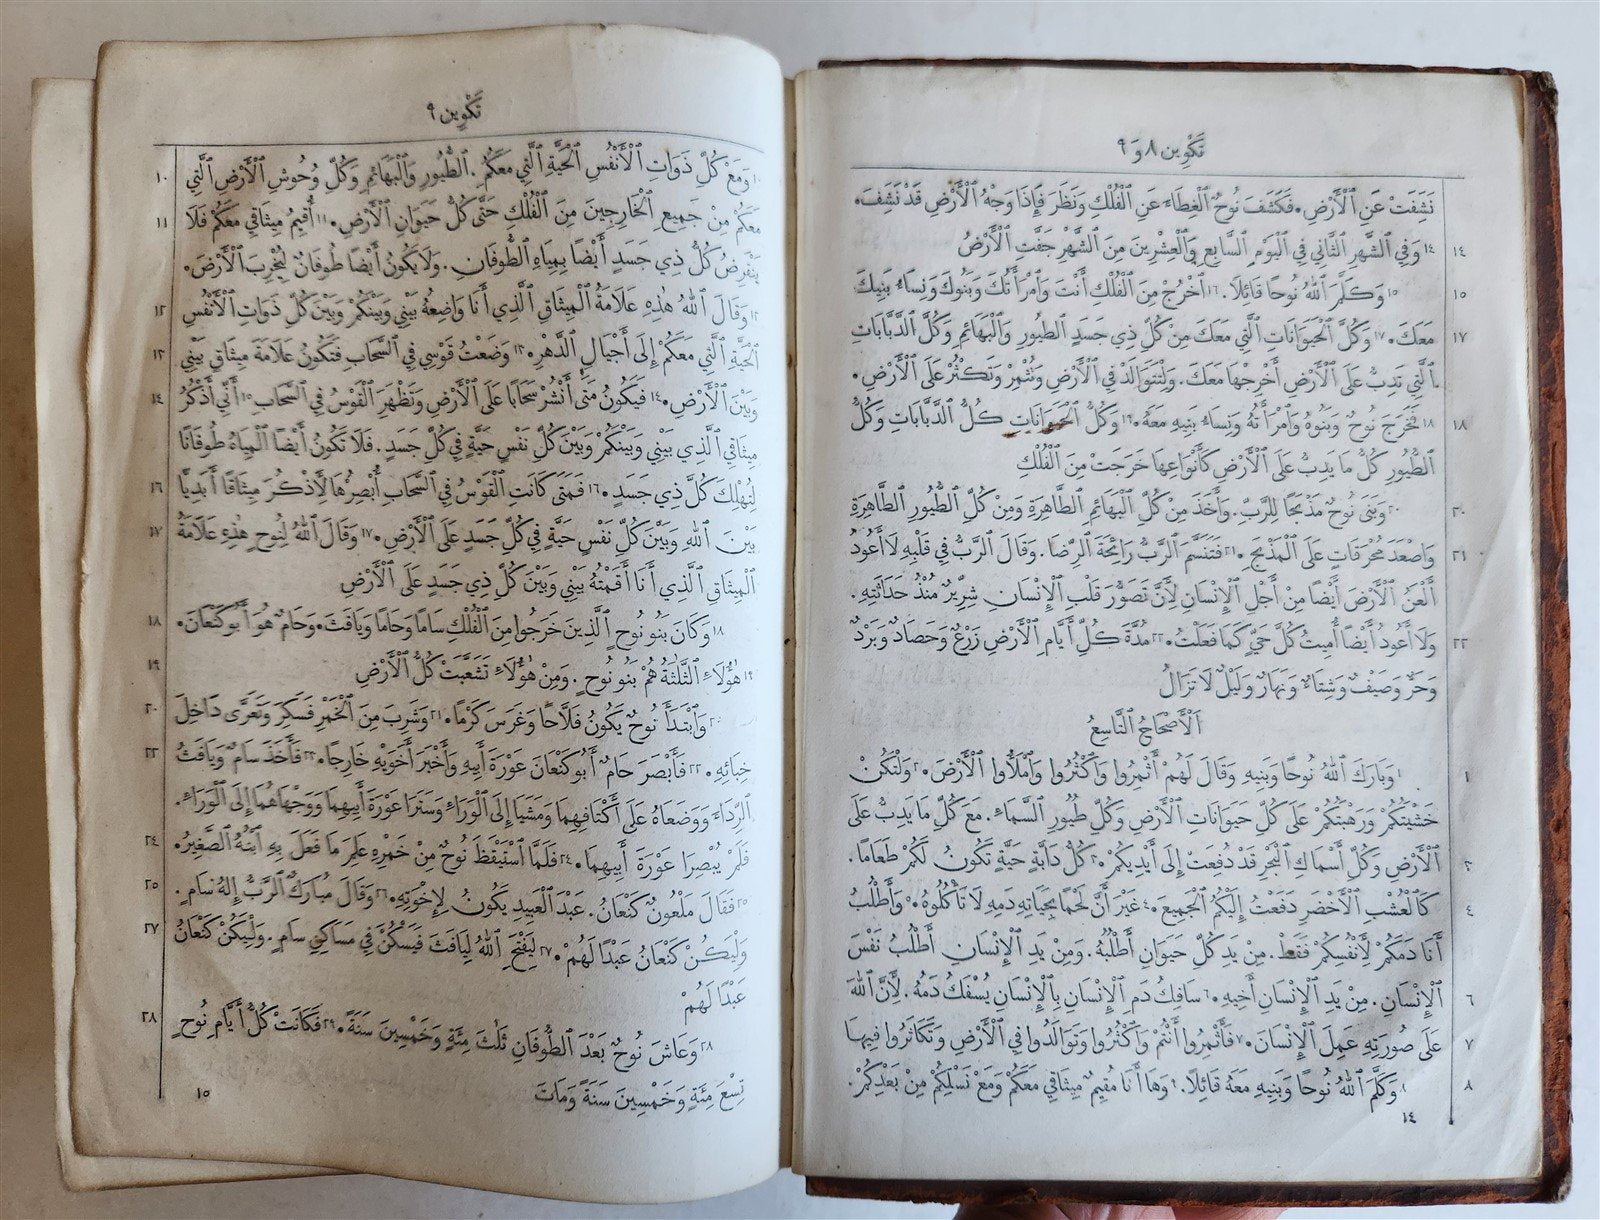 تَكْوِين ٨ و ٩
نَشَفَتْ عَنِ ٱلْأَرْضِ. فَكَشَفَ نُوحٌ ٱلْغِطَاءَ عَنِ ٱلْفُلْكِ وَنَظَرَ فَإِذَا وَجْهُ ٱلْأَرْضِ قَدْ نَشِفَ.
١٤ ١٤ وَفِي ٱلشَّهْرِ ٱلثَّانِي فِي ٱلْيَوْمِ ٱلسَّابِعِ وَٱلْعِشْرِينَ مِنَ ٱلشَّهْرِ جَفَّتِ ٱلْأَرْضُ
١٥ ١٥ وَكَلَّمَ ٱللهُ نُوحًا قَائِلًا. ١٦ ٱخْرُجْ مِنَ ٱلْفُلْكِ أَنْتَ وَٱمْرَأَتُكَ وَبَنُوكَ وَنِسَاءُ بَنِيكَ
١٧ مَعَكَ. ١٧ وَكُلَّ ٱلْحَيَوَانَاتِ ٱلَّتِي مَعَكَ مِنْ كُلِّ ذِي جَسَدٍ ٱلطُّيُورِ وَٱلْبَهَائِمِ وَكُلَّ ٱلدَّبَّابَاتِ
ٱلَّتِي تَدِبُّ عَلَى ٱلْأَرْضِ أَخْرِجْهَا مَعَكَ. وَلْتَتَوَالَدْ فِي ٱلْأَرْضِ وَتُثْمِرْ وَتَكْثُرْ عَلَى ٱلْأَرْضِ.
١٨ ١٨ فَخَرَجَ نُوحٌ وَبَنُوهُ وَٱمْرَأَتُهُ وَنِسَاءُ بَنِيهِ مَعَهُ. ١٩ وَكُلُّ ٱلْحَيَوَانَاتِ كُلُّ ٱلدَّبَّابَاتِ وَكُلُّ
ٱلطُّيُورِ كُلُّ مَا يَدِبُّ عَلَى ٱلْأَرْضِ كَأَنْوَاعِهَا خَرَجَتْ مِنَ ٱلْفُلْكِ
٢٠ ٢٠ وَبَنَى نُوحٌ مَذْبَحًا لِلرَّبِّ. وَأَخَذَ مِنْ كُلِّ ٱلْبَهَائِمِ ٱلطَّاهِرَةِ وَمِنْ كُلِّ ٱلطُّيُورِ ٱلطَّاهِرَةِ
٢١ وَأَصْعَدَ مُحْرَقَاتٍ عَلَى ٱلْمَذْبَحِ. ٢١ فَتَنَسَّمَ ٱلرَّبُّ رَائِحَةَ ٱلرِّضَا. وَقَالَ ٱلرَّبُّ فِي قَلْبِهِ لَا أَعُودُ
أَلْعَنُ ٱلْأَرْضَ أَيْضًا مِنْ أَجْلِ ٱلْإِنْسَانِ لِأَنَّ تَصَوُّرَ قَلْبِ ٱلْإِنْسَانِ شِرِّيرٌ مُنْذُ حَدَاثَتِهِ.
٢٢ وَلَا أَعُودُ أَيْضًا أُمِيتُ كُلَّ حَيٍّ كَمَا فَعَلْتُ. ٢٢ مُدَّةَ كُلِّ أَيَّامِ ٱلْأَرْضِ زَرْعٌ وَحَصَادٌ وَبَرْدٌ
وَحَرٌّ وَصَيْفٌ وَشِتَاءٌ وَنَهَارٌ وَلَيْلٌ لَا تَزَالُ
اَلْأَصْحَاحُ ٱلتَّاسِعُ
١ ١ وَبَارَكَ ٱللهُ نُوحًا وَبَنِيهِ وَقَالَ لَهُمْ أَثْمِرُوا وَٱكْثُرُوا وَٱمْلَأُوا ٱلْأَرْضَ. ٢ وَلْتَكُنْ
خَشْيَتُكُمْ وَرَهْبَتُكُمْ عَلَى كُلِّ حَيَوَانَاتِ ٱلْأَرْضِ وَكُلِّ طُيُورِ ٱلسَّمَاءِ. مَعَ كُلِّ مَا يَدِبُّ عَلَى
٣ ٱلْأَرْضِ وَكُلِّ أَسْمَاكِ ٱلْبَحْرِ قَدْ دُفِعَتْ إِلَى أَيْدِيكُمْ. ٣ كُلُّ دَابَّةٍ حَيَّةٍ تَكُونُ لَكُمْ طَعَامًا.
٤ كَٱلْعُشْبِ ٱلْأَخْضَرِ دَفَعْتُ إِلَيْكُمُ ٱلْجَمِيعَ. ٤ غَيْرَ أَنَّ لَحْمًا بِحَيَاتِهِ دَمِهِ لَا تَأْكُلُوهُ. ٥ وَأَطْلُبُ
أَنَا دَمَكُمْ لِأَنْفُسِكُمْ فَقَطْ. مِنْ يَدِ كُلِّ حَيَوَانٍ أَطْلُبُهُ. وَمِنْ يَدِ ٱلْإِنْسَانِ أَطْلُبُ نَفْسَ
٦ ٱلْإِنْسَانِ. مِنْ يَدِ ٱلْإِنْسَانِ أَخِيهِ. ٦ سَافِكُ دَمِ ٱلْإِنْسَانِ بِٱلْإِنْسَانِ يُسْفَكُ دَمُهُ. لِأَنَّ ٱللهَ
٧ عَلَى صُورَتِهِ عَمِلَ ٱلْإِنْسَانَ. ٧ فَأَثْمِرُوا أَنْتُمْ وَٱكْثُرُوا وَتَوَالَدُوا فِي ٱلْأَرْضِ وَتَكَاثَرُوا فِيهَا
٨ ٨ وَكَلَّمَ ٱللهُ نُوحًا وَبَنِيهِ مَعَهُ قَائِلًا. ٩ وَهَا أَنَا مُقِيمٌ مِيثَاقِي مَعَكُمْ وَمَعَ نَسْلِكُمْ مِنْ بَعْدِكُمْ.
١٤
تَكْوِين ٩
١٠ ١٠ وَمَعَ كُلِّ ذَوَاتِ ٱلْأَنْفُسِ ٱلْحَيَّةِ ٱلَّتِي مَعَكُمْ. ٱلطُّيُورِ وَٱلْبَهَائِمِ وَكُلِّ وُحُوشِ ٱلْأَرْضِ ٱلَّتِي
١١ مَعَكُمْ مِنْ جَمِيعِ ٱلْخَارِجِينَ مِنَ ٱلْفُلْكِ حَتَّى كُلُّ حَيَوَانِ ٱلْأَرْضِ. ١١ أُقِيمُ مِيثَاقِي مَعَكُمْ فَلَا
يَنْقَرِضُ كُلُّ ذِي جَسَدٍ أَيْضًا بِمِيَاهِ ٱلطُّوفَانِ. وَلَا يَكُونُ أَيْضًا طُوفَانٌ لِيُخْرِبَ ٱلْأَرْضَ.
١٢ ١٢ وَقَالَ ٱللهُ هٰذِهِ عَلَامَةُ ٱلْمِيثَاقِ ٱلَّذِي أَنَا وَاضِعُهُ بَيْنِي وَبَيْنَكُمْ وَبَيْنَ كُلِّ ذَوَاتِ ٱلْأَنْفُسِ
١٣ ٱلْحَيَّةِ ٱلَّتِي مَعَكُمْ إِلَى أَجْيَالِ ٱلدَّهْرِ. ١٣ وَضَعْتُ قَوْسِي فِي ٱلسَّحَابِ فَتَكُونُ عَلَامَةَ مِيثَاقٍ بَيْنِي
١٤ وَبَيْنَ ٱلْأَرْضِ. ١٤ فَيَكُونُ مَتَى أَنْشُرْ سَحَابًا عَلَى ٱلْأَرْضِ وَتَظْهَرِ ٱلْقَوْسُ فِي ٱلسَّحَابِ ١٥ أَنِّي أَذْكُرُ
مِيثَاقِي ٱلَّذِي بَيْنِي وَبَيْنَكُمْ وَبَيْنَ كُلِّ نَفْسٍ حَيَّةٍ فِي كُلِّ جَسَدٍ. فَلَا تَكُونُ أَيْضًا ٱلْمِيَاهُ طُوفَانًا
١٦ لِتُهْلِكَ كُلَّ ذِي جَسَدٍ. ١٦ فَمَتَى كَانَتِ ٱلْقَوْسُ فِي ٱلسَّحَابِ أُبْصِرُهَا لِأَذْكُرَ مِيثَاقًا أَبَدِيًّا
١٧ بَيْنَ ٱللهِ وَبَيْنَ كُلِّ نَفْسٍ حَيَّةٍ فِي كُلِّ جَسَدٍ عَلَى ٱلْأَرْضِ. ١٧ وَقَالَ ٱللهُ لِنُوحٍ هٰذِهِ عَلَامَةُ
ٱلْمِيثَاقِ ٱلَّذِي أَنَا أَقَمْتُهُ بَيْنِي وَبَيْنَ كُلِّ ذِي جَسَدٍ عَلَى ٱلْأَرْضِ
١٨ ١٨ وَكَانَ بَنُو نُوحٍ ٱلَّذِينَ خَرَجُوا مِنَ ٱلْفُلْكِ سَامًا وَحَامًا وَيَافَثَ. وَحَامٌ هُوَ أَبُو كَنْعَانَ.
١٩ ١٩ هٰؤُلَاءِ ٱلثَّلٰثَةُ هُمْ بَنُو نُوحٍ. وَمِنْ هٰؤُلَاءِ تَشَعَّبَتْ كُلُّ ٱلْأَرْضِ
٢٠ ٢٠ وَٱبْتَدَأَ نُوحٌ يَكُونُ فَلَّاحًا وَغَرَسَ كَرْمًا. ٢١ وَشَرِبَ مِنَ ٱلْخَمْرِ فَسَكِرَ وَتَعَرَّى دَاخِلَ
٢٢ خِبَائِهِ. ٢٢ فَأَبْصَرَ حَامٌ أَبُو كَنْعَانَ عَوْرَةَ أَبِيهِ وَأَخْبَرَ أَخَوَيْهِ خَارِجًا. ٢٣ فَأَخَذَ سَامٌ وَيَافَثُ
ٱلرِّدَاءَ وَوَضَعَاهُ عَلَى أَكْتَافِهِمَا وَمَشَيَا إِلَى ٱلْوَرَاءِ وَسَتَرَا عَوْرَةَ أَبِيهِمَا وَوَجْهَاهُمَا إِلَى ٱلْوَرَاءِ.
٢٤ فَلَمْ يُبْصِرَا عَوْرَةَ أَبِيهِمَا. ٢٤ فَلَمَّا ٱسْتَيْقَظَ نُوحٌ مِنْ خَمْرِهِ عَلِمَ مَا فَعَلَ بِهِ ٱبْنُهُ ٱلصَّغِيرُ.
٢٥ ٢٥ فَقَالَ مَلْعُونٌ كَنْعَانُ. عَبْدَ ٱلْعَبِيدِ يَكُونُ لِإِخْوَتِهِ. ٢٦ وَقَالَ مُبَارَكٌ ٱلرَّبُّ إِلٰهُ سَامٍ.
٢٧ وَلْيَكُنْ كَنْعَانُ عَبْدًا لَهُمْ. ٢٧ لِيَفْتَحِ ٱللهُ لِيَافَثَ فَيَسْكُنَ فِي مَسَاكِنِ سَامٍ. وَلْيَكُنْ كَنْعَانُ
عَبْدًا لَهُمْ
٢٨ ٢٨ وَعَاشَ نُوحٌ بَعْدَ ٱلطُّوفَانِ ثَلٰثَ مِئَةٍ وَخَمْسِينَ سَنَةً. ٢٩ فَكَانَتْ كُلُّ أَيَّامِ نُوحٍ
تِسْعَ مِئَةٍ وَخَمْسِينَ سَنَةً وَمَاتَ
١٥